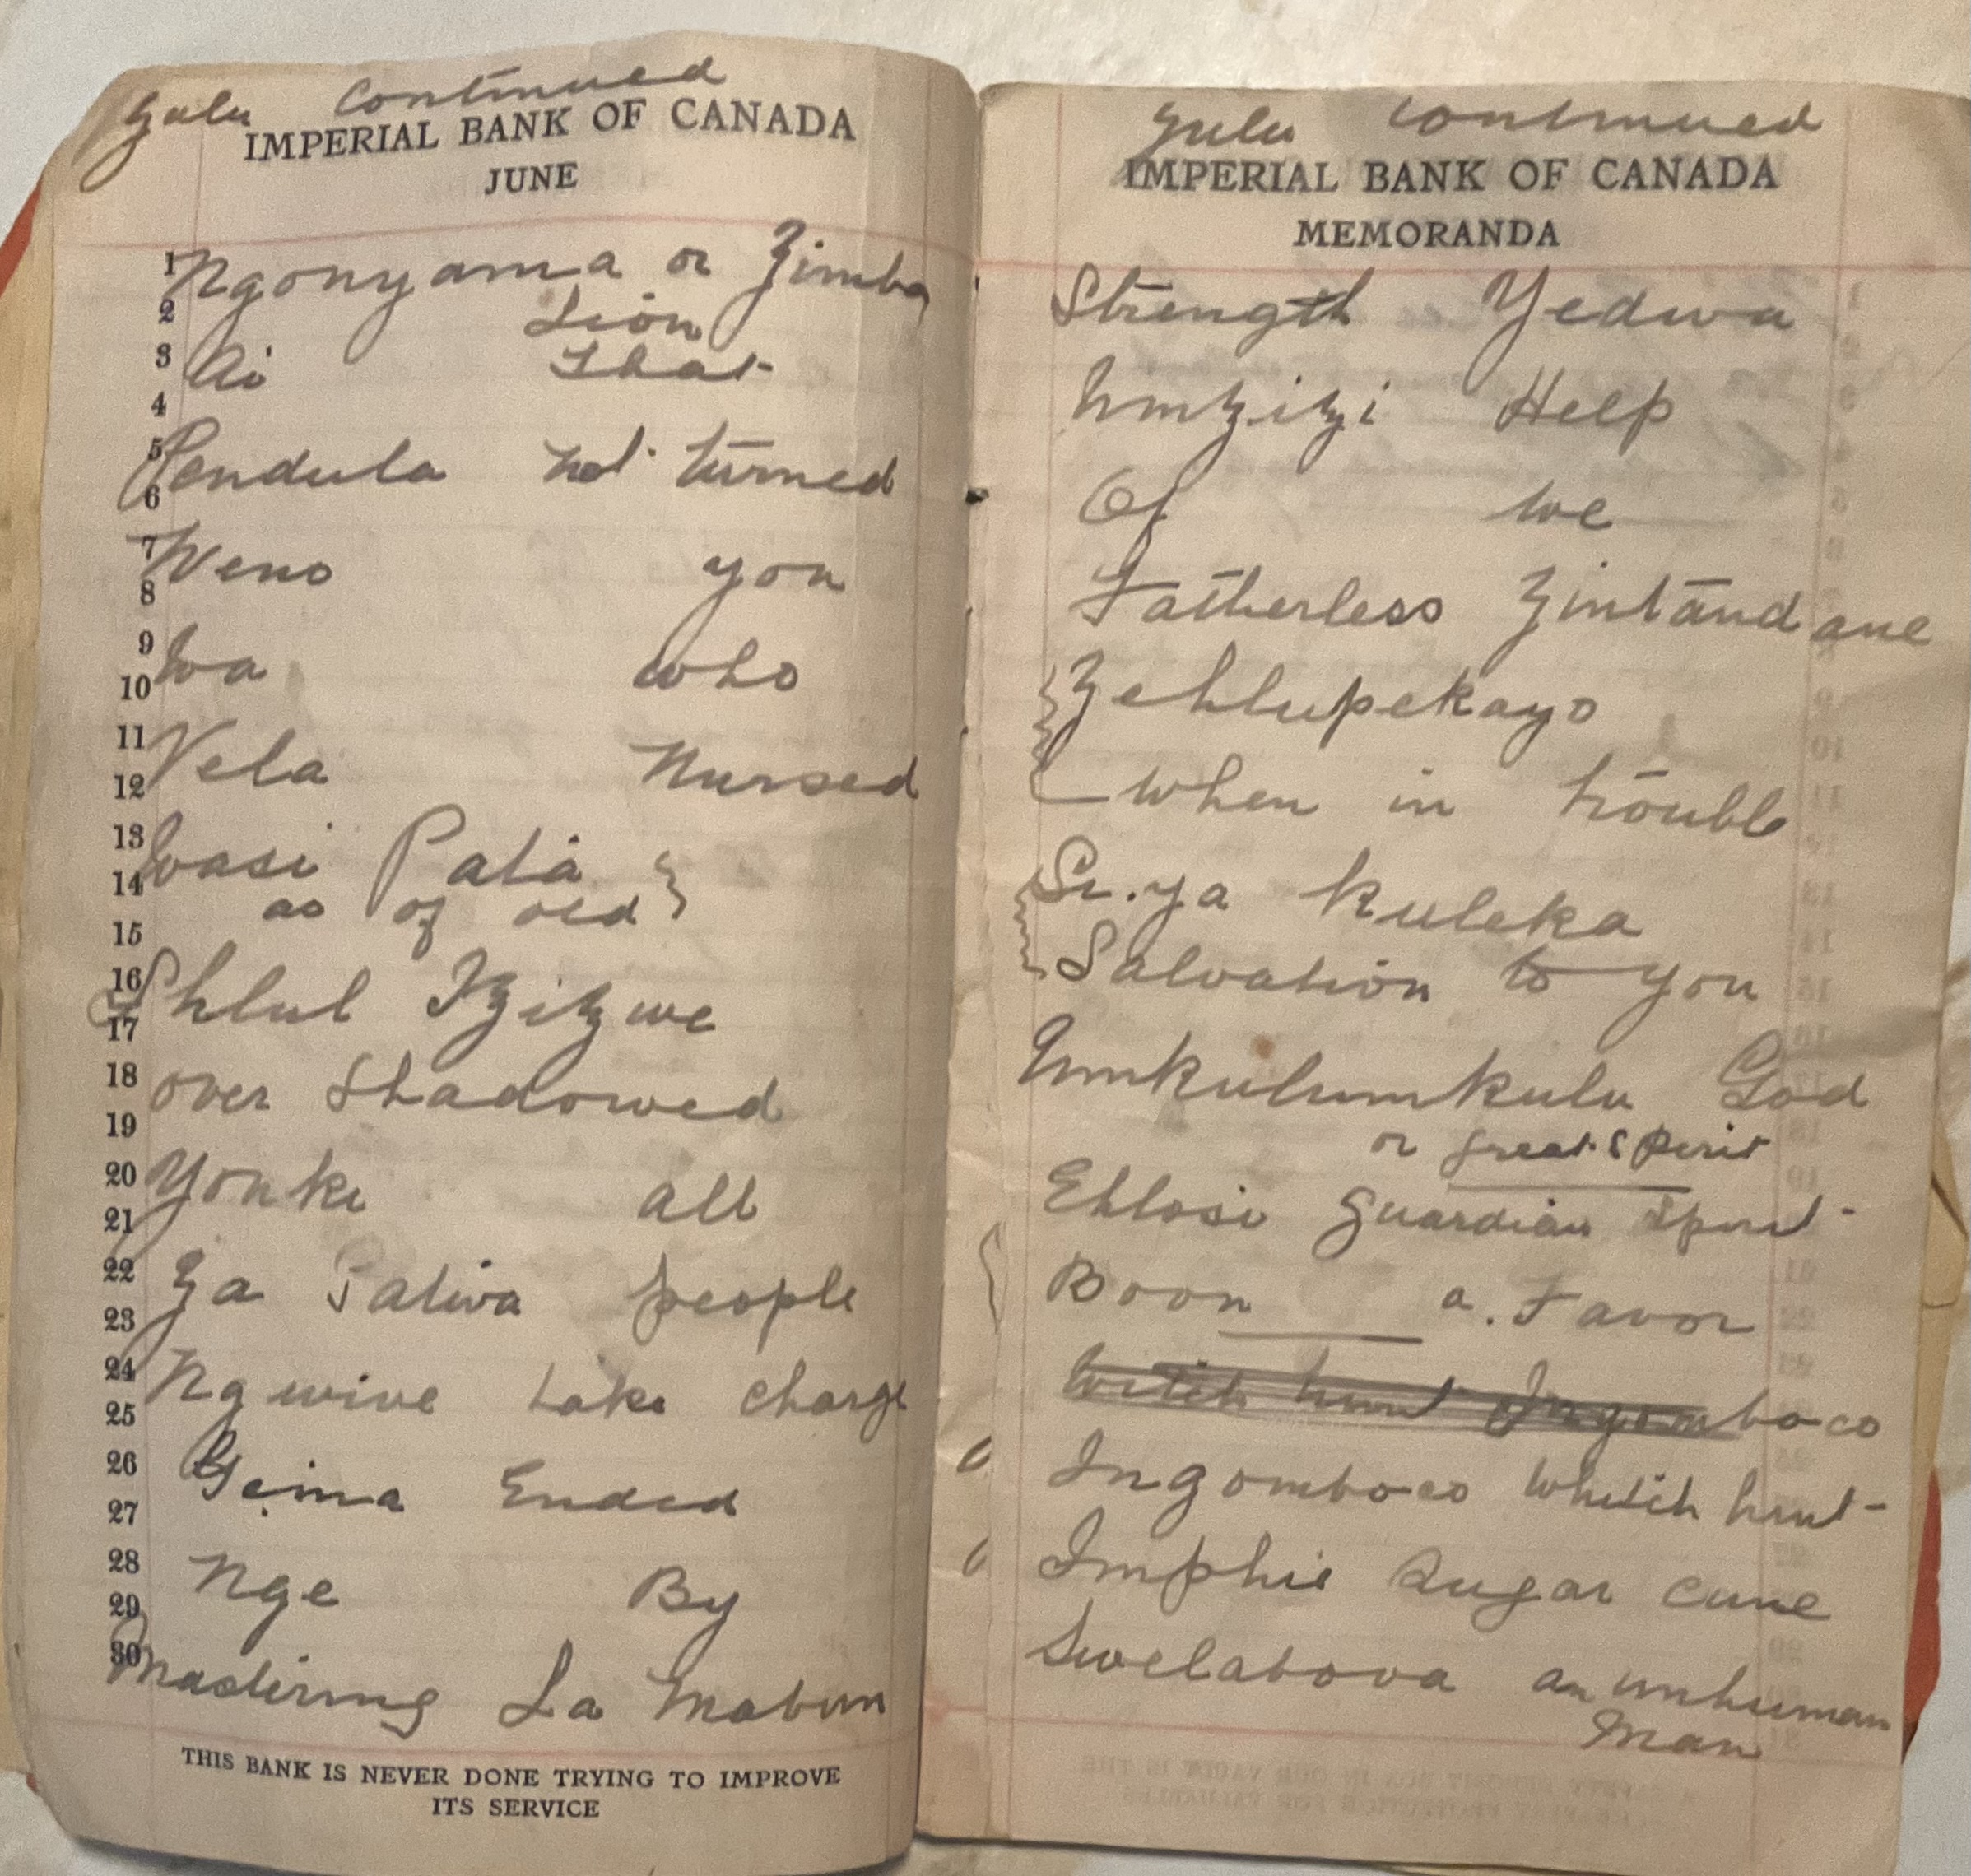 Zulu continued
IMPERIAL BANK OF CANADA
JUNE
1 Ngonyama or Zimba
2 Lion
3 Ai That
4
5 Pendula not turned
6
7 Weno you
8
9 Wa who
10
11 Vela Nursed
12
13 Wasi Pata
14 as of old
15
16 Ehlul Izizwe
17
18 over Shadowed
19
20 Yonke all
21
22 Za Patwa people
23
24 Ngwive take charge
25
26 Geina Ended
27
28 Nge By
29
30 Mastering La Mabun
THIS BANK IS NEVER DONE TRYING TO IMPROVE
ITS SERVICE
Zulu continued
IMPERIAL BANK OF CANADA
MEMORANDA
Strength Yedwa
Umzizi Help
Of we
Fatherless Zintandane
Zehlupekayo
when in trouble
Si.ya kuleka
Salvation to you
Umkulumkulu God
or great Sperit
Ehlosi Guardian Spirit
Boon a. Favor
Witch hunt Ingomboco
Ingomboco Whitch hunt
Imphie Sugar cane
Swelabova an unhuman
Man